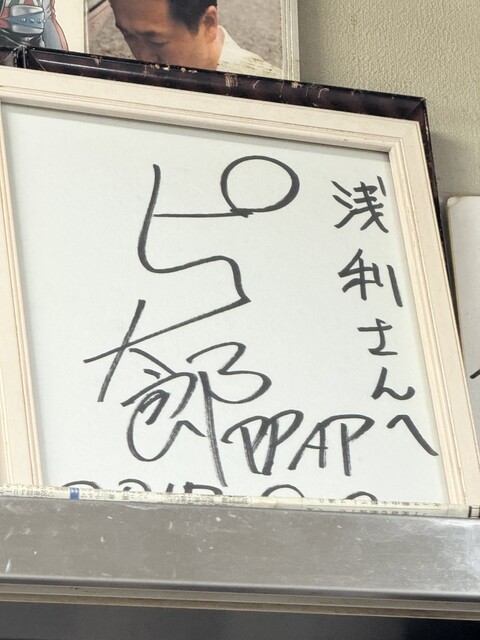 浅利さんへ
ピコ太郎
PPAP